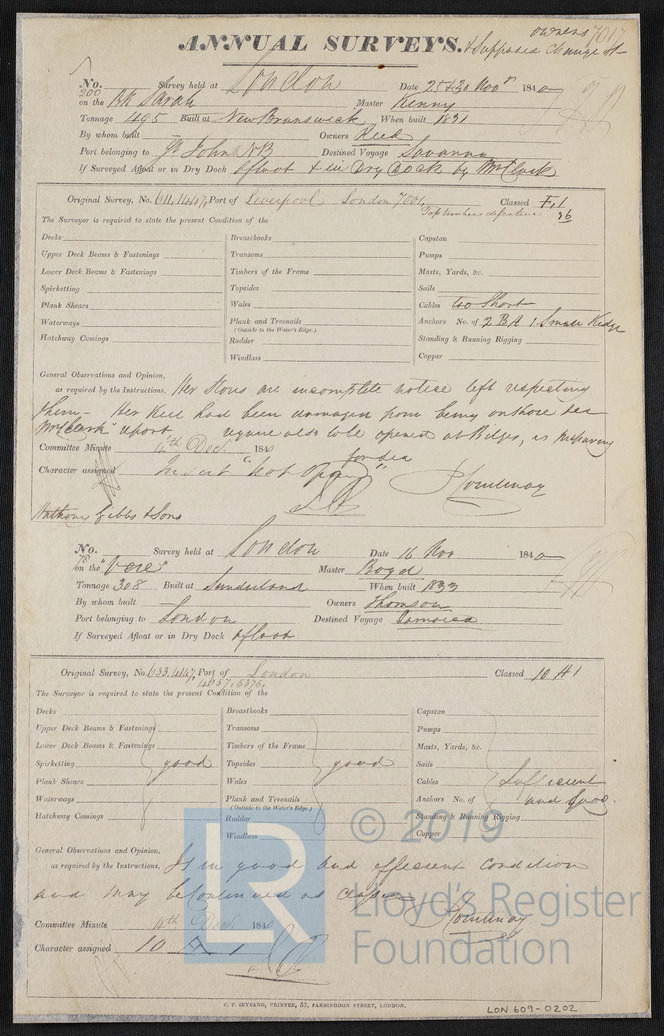 owners 7017
ANNUAL SURVEYS. & Supposed Change of
No. 200 Survey held at London Date 25 & 30 Novr 1840
on the Bk Sarah Master Kenny
Tonnage 495 Built at New Brunswick When built 1831
By whom built Owners Reed
Port belonging to St Johns NB Destined Voyage Savanna
If Surveyed Afloat or in Dry Dock Afloat & in Dry Dock by Mr Clark
Original Survey, No. 611, 1447, Port of Liverpool London 7001, Classed
The Surveyor is required to state the present Condition of the
Decks Breasthooks Capstan
Upper Deck Beams & Fastenings Transoms Pumps
Lower Deck Beams & Fastenings Timbers of the Frame Masts, Yards, &c.
Spirketting Topsides Sails
Plank Shears Wales Cables too Short
Waterways Plank and Treenails Anchors No. of 2 BA 1 Small Kedge
(Outside to the Water's Edge.)
Hatchway Comings Rudder Standing & Running Rigging
Windlass Copper
General Observations and Opinion,
as required by the Instructions, Her Stores are incomplete notice left respecting
them - Her Keel had been damaged from being on shore see
Mr Clark's report also to be opened at Bilges, as
Committee Minute 4th Decr 1840
Character assigned
Anthony Gibbs & Sons
No. 78 Survey held at London Date 16 Nov 1840
on the "Vere" Master Boyd
Tonnage 308 Built at Sunderland When built 1833
By whom built Owners Thomson
Port belonging to London Destined Voyage Jamaica
If Surveyed Afloat or in Dry Dock Afloat
Original Survey, No. 633, 4147, Port of London Classed 10 A1
4037, 5376,
The Surveyor is required to state the present Condition of the
Decks Breasthooks Capstan
Upper Deck Beams & Fastenings Transoms Pumps
Lower Deck Beams & Fastenings Timbers of the Frame Masts, Yards, &c.
Spirketting good Topsides good Sails
Plank Shears Wales Cables Sufficient
Waterways Plank and Treenails Anchors No. of and good
(Outside to the Water's Edge.)
Hatchway Comings Rudder Standing & Running Rigging
Windlass Copper
General Observations and Opinion,
as required by the Instructions, Is in good and efficient condition
and may be Continued as classed
Committee Minute 4th Decr 1840
Character assigned 10 A 1
© 2019
LR
Lloyd's Register
Foundation
C. F. SEYFANG, PRINTER, 57, FARRINGDON STREET, LONDON.
LON 609-0202